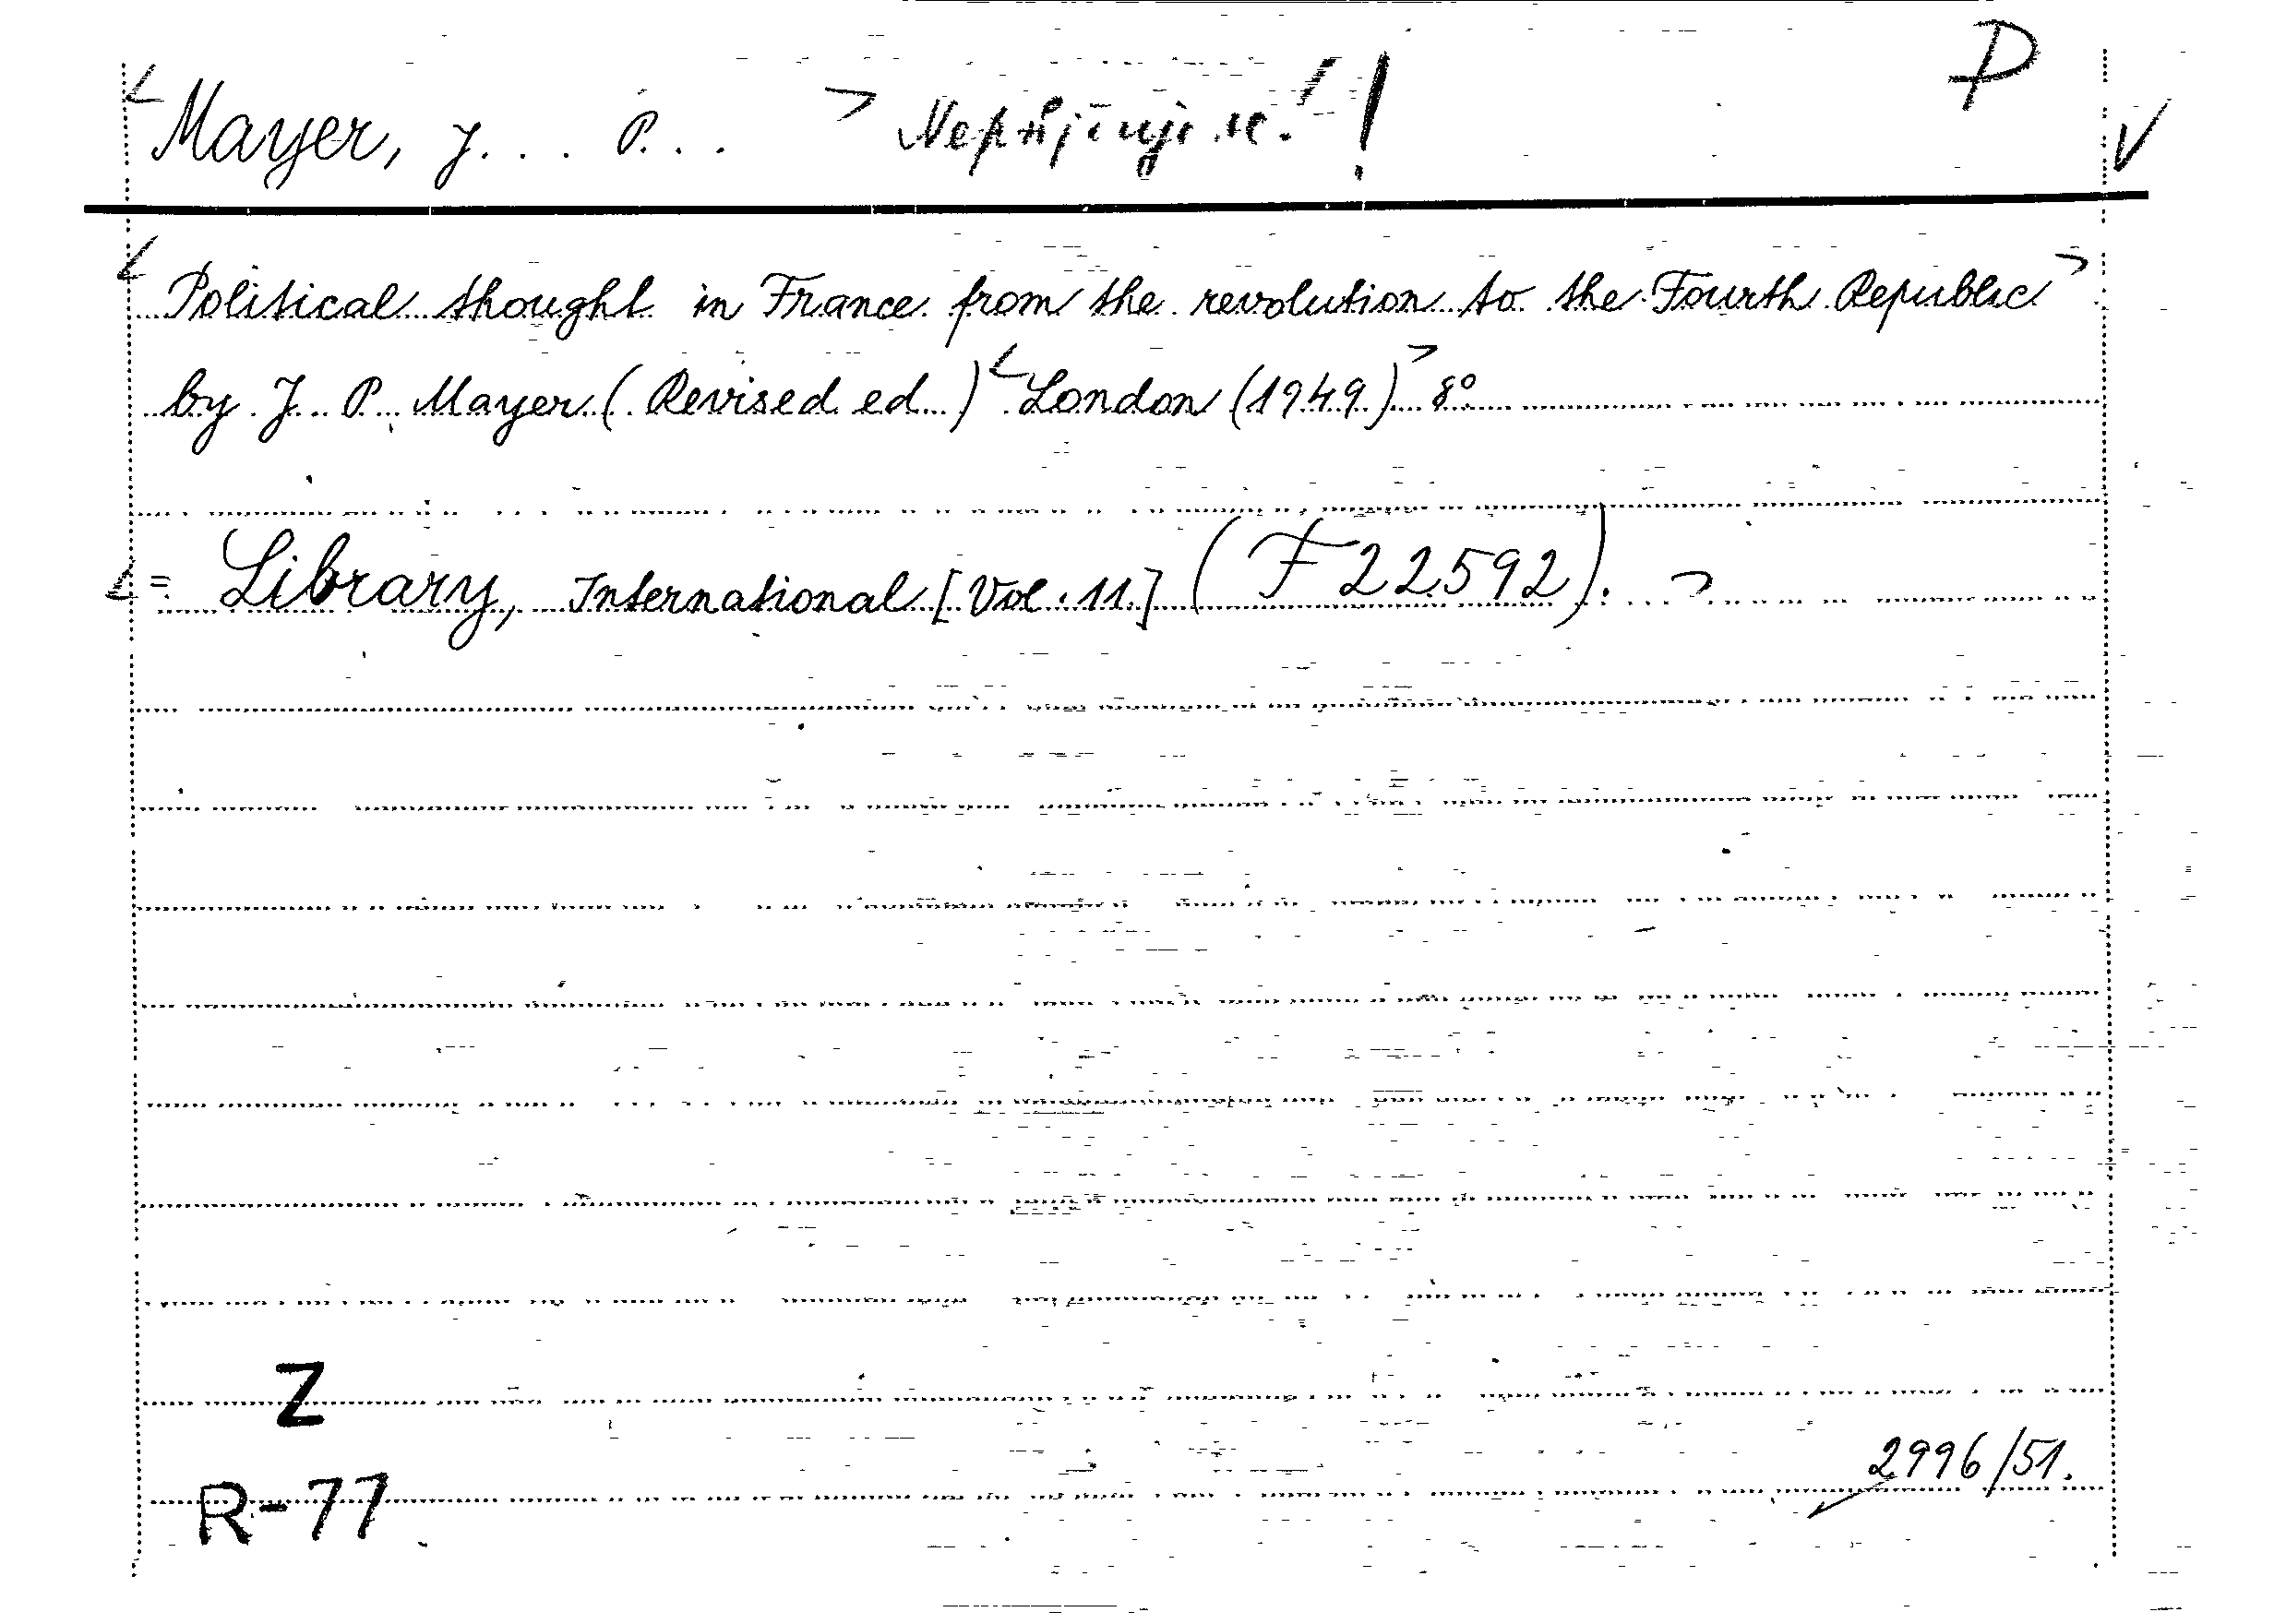 Mayer, J... P... Nepůjčuje se! ! P
V
Political thought in France from the revolution to the Fourth Republic
by J. P. Mayer (Revised ed.) London (1949) 8°
= Library, International [Vol. 11] (F 22592).
Z
2996/51.
R-77